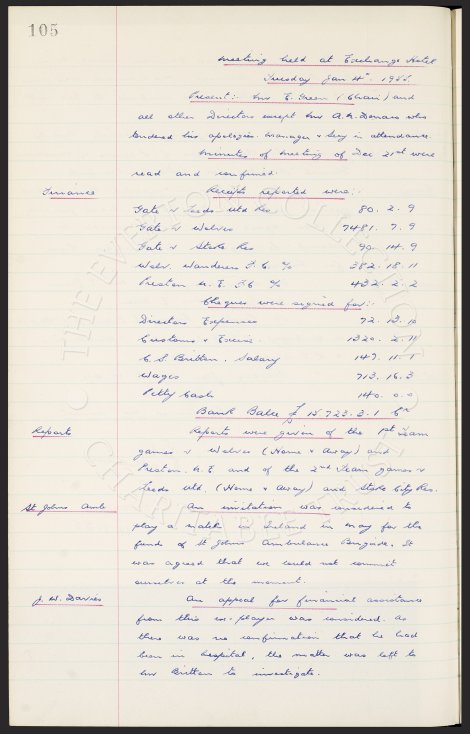 105
Meeting held at Exchange Hotel
Tuesday Jan 4th 1955.
Present:- Mr E. Green (Chair) and
all other Directors except Mr A. N. Denaro who
tendered his apologies. Manager & Secy in attendance.
Minutes of meeting of Dec 21st were
read and confirmed.
Finance
Receipts reported were:-
Gate v Leeds Utd Res 80. 2. 9
Gate v Wolves 7481. 7. 9
Gate v Stoke Res 90. 14. 9
Wolv. Wanderers F.C. % 382. 18. 11
Preston N.E. FC % 432. 2. 2
Cheques were signed for:-
Directors Expenses 72. 13. 10
Customs & Excise 1320. 2. 11
C. S. Britton. Salary 147. 11. 1
Wages 713. 16. 3
Petty Cash 140. 0. 0
Bank Balce £ 15,723. 3. 1 Cr
Reports
Reports were given of the 1st Team
games v Wolves (Home & Away) and
Preston. N.E and of the 2nd Team games v
Leeds Utd. (Home & Away) and Stoke City Res.
St Johns Amb
An invitation was considered to
play a match in Ireland in May for the
funds of St Johns Ambulance Brigade. It
was agreed that we could not commit
ourselves at the moment.
J. W. Davies
An appeal for financial assistance
from this ex-player was considered. As
there was no confirmation that he had
been in hospital, the matter was left to
Mr Britton to investigate.
THE EVERTON COLLECTION
CHARITABLE TRUST